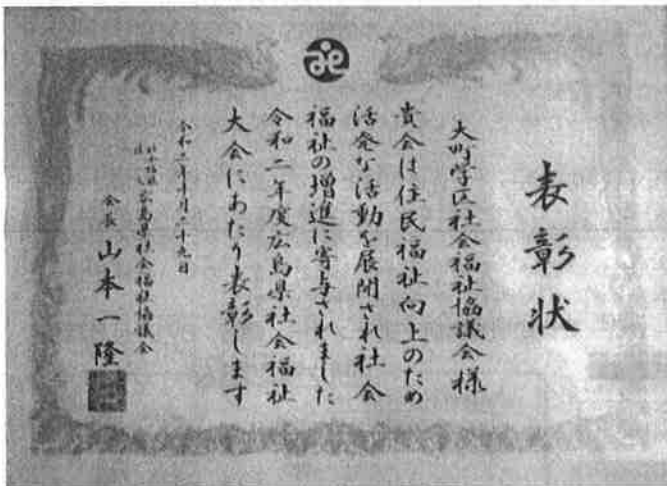 表彰状
大町学区社会福祉協議会様
貴会は住民福祉向上のため
活発な活動を展開され社会
福祉の増進に寄与されました
令和二年度広島県社会福祉
大会にあたり表彰します
令和二年十月二十九日
社会福祉法人
広島県社会福祉協議会
会長 山本一隆